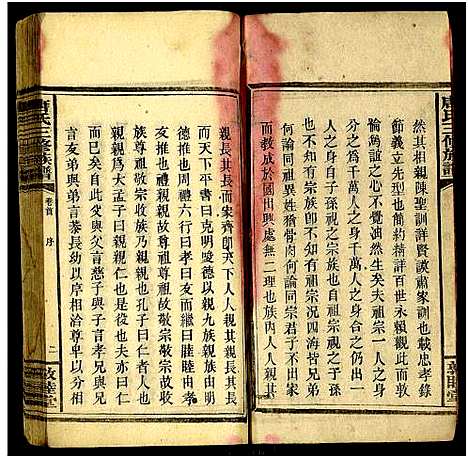 唐氏三修族譜
然其相親陳聖訓詳謨肅家訓也載忠孝錄
節義立先型也簡約精詳百世永賴觀此而
倫誼之心不覺油然生矣夫宗一身之分
千萬人之身千萬人之身合之仍出一人之
身以子孫視之宗族也自祖宗視之子孫
也既知有祖宗即知有宗族況四海皆兄弟
何論同祖異姓猶骨肉何論同宗君子不出家
而教成於國出興處無二理也族內人人親其
親長其長而家齊即天下人人親其親長其長
而天下平書曰克明峻德以親九族親族由明
德推也周禮六行曰孝曰友而繼曰睦睦由孝
友推也是故尊祖敬宗敬宗收族收
族尊祖敬宗收族乃親親也孔子曰仁者人也
親親為大孟子曰親親仁也是親親亦曰仁
而已矣自此父與父言慈子與子言孝兄與兄
言友弟與弟言恭長幼以序相洽尊卑以分
唐氏三修族譜
卷首
序
二
敦睦堂
敦睦堂